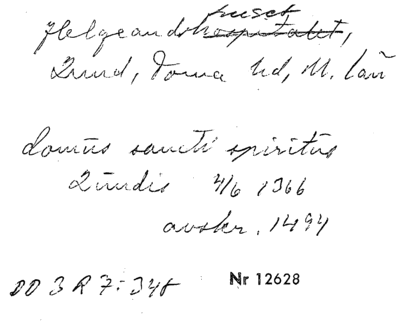 huset
Helgeandshospitalet,
Lund, Torna hd, M. län
domus sancti spiritus
Lundis 4/6 1366
avskr. 1494
DD 3 R 7: 348
Nr 12628